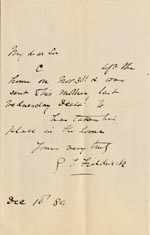 My dear Sir
C left the
home on Nov 3rd & was
sent to his mother last
Wednesday Decr
has taken his
place in the home
Yours very truly
Dec 10th 84